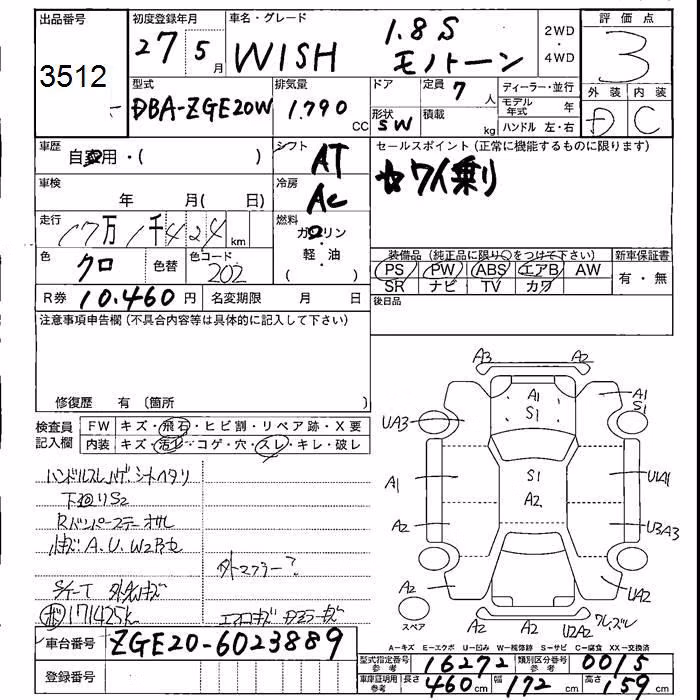 出品番号
3512
初度登録年月
27 5月
車名・グレード
WISH 1.8S
モノトーン
2WD
・
4WD
評価点
3
外装 内装
D C
型式
DBA-ZGE20W
排気量
1.790 CC
ドア
形状
SW
定員
7人
積載
kg
ディーラー・並行
モデル年式 年
ハンドル 左・右
車歴
自家用・( )
シフト
AT
セールスポイント(正常に機能するものに限ります)
☆7人乗り
車検
年 月( 日)
冷房
AC
走行
17万1千424km
燃料
ガソリン
・
軽・油
( )
色
クロ
色替
色コード
202
装備品(純正品に限り○をつけて下さい)
新車保証書
PS PW ABS エアB AW
SR ナビ TV カワ
有・無
R券 10.460円
名変期限 月 日
後日品
注意事項申告欄(不具合内容等は具体的に記入して下さい)
修復歴 有(箇所 )
検査員
記入欄
FW キズ・飛石・ヒビ割・リペア跡・X要
内装 キズ・汚レ・コゲ・穴・スレ・キレ・破レ
ハンドルスレ ハゲ シートヘタリ
下廻りS2
Rバンパーステー
小キズ A.U.W2
外マフラー?
171425k
A3 A2
A1
S1
A1
S1
UA3
A1
S1
A2
U1A1
A2
U3A3
A2
UA2
スペア
A2 A2 U2A2
ワレ、ズレ
A-キズ E-エクボ U-凹み W-板修跡 S-サビ C-腐食 XX-交換済
車台番号
ZGE20-6023889
型式指定番号
参考
16272
類別区分番号
参考
0015
登録番号
車庫証明用
参考
長さ 460cm 幅 172cm 高さ 159cm